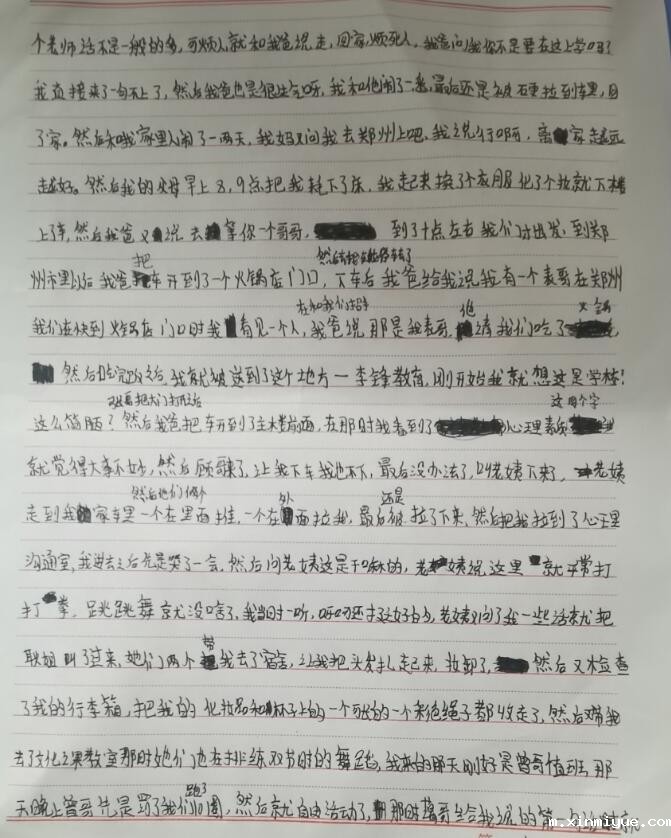 个老师话不是一般的多，可烦人就和我爸说走，回家，烦死人，我爸问我你不是要在这上学吗？
我直接来了一句不上了，然后我爸也是很生气呀，我和他闹了一，最后还是被硬拉到车里，回
了家。然后和我家里人闹了一两天，我妈又问我去郑州上吧，我说行啊，离家越远
越好。然后我的父母早上8,9点把我耗下了床，我起来换了个衣服化了个妆就下楼
上了车，然后我爸又说去拿你一个哥哥，到了十点左右我们才出发，到郑
州市里以后我爸把车开到了一个火锅店门口，下车后我爸给我说我有一个表哥在郑州
我们在快到火锅店门口时我看见一个人，在和我们招手我爸说那是我表哥，他请我们吃了火锅
然后吃完饭之后，我就被送到了这个地方一李锋教育，刚开始我就想这是学校！
这么简陋？然后我爸把车开到了主楼前面，在那时我看到了心理素质这四个字
就觉得大事不妙，然后顾哥来了，让我下车我也不下，最后没办法了，叫老姨下来了，老姨
走到我家车里然后他们俩个一个在里面推，一个在外面拉我，最后还是被拉了下来，然后把我拉到了心理
沟通室，我进去之后先是哭了一会，然后问老姨这是干嘛的，老姨说这里就平常打
打拳，跳跳舞就没啥了，我当时一听，呀还挺好的，老姨又问了我一些话就把
耿姐叫了过来，她们两个带我去了宿舍，让我把头发扎起来，妆卸了，然后又检查
了我的行李箱，把我的化妆品和杯子上的一个的一个彩色绳子都收走了，然后带我
去了文化课教室那时她们也在排练双节时的舞蹈，我来的那天刚好是曾哥值班，那
天晚上曾哥先是罚了我们跑了10圈，然后就自由活动了，那时
m.xinmiyue.com